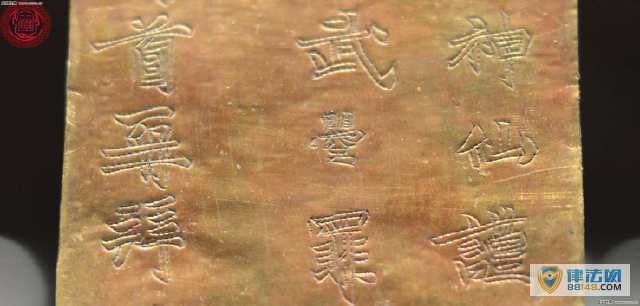 神仙謹
武曌罪
首再拜
律法网
88148.com